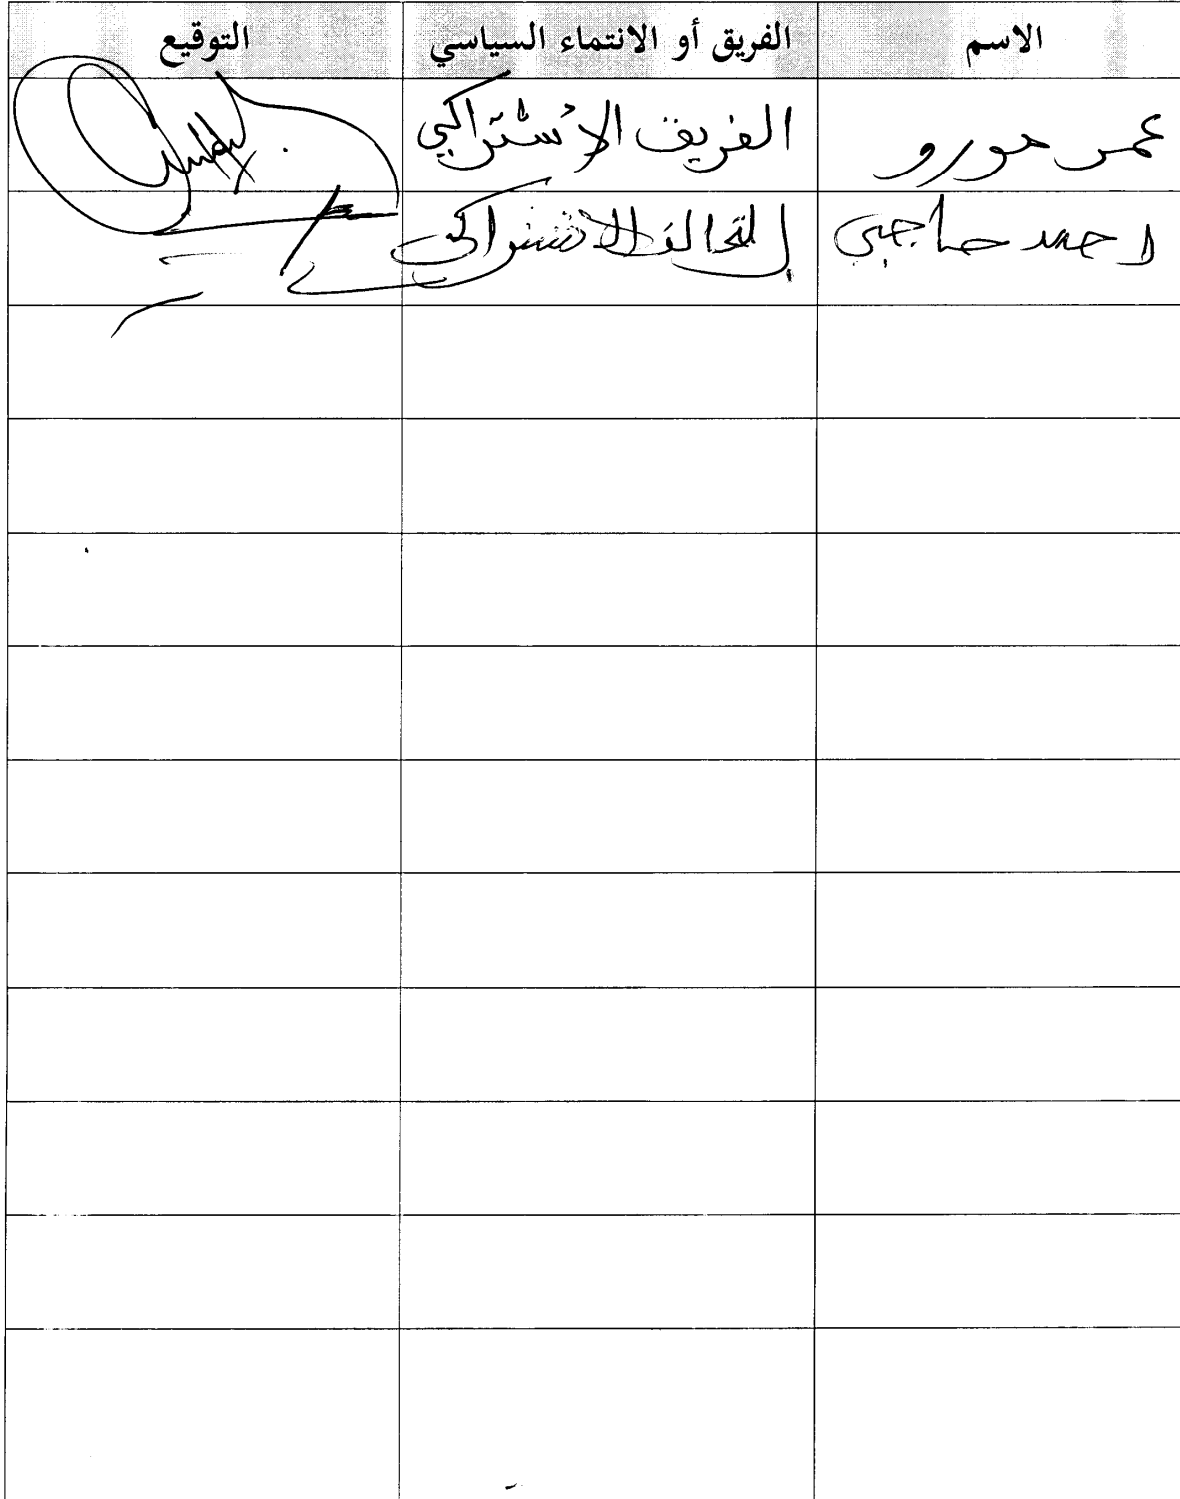 الاسم الفريق أو الانتماء السياسي التوقيع
عمر مورو الفريق الاشتراكي
احمد حاجي التحالف الاشتراكي